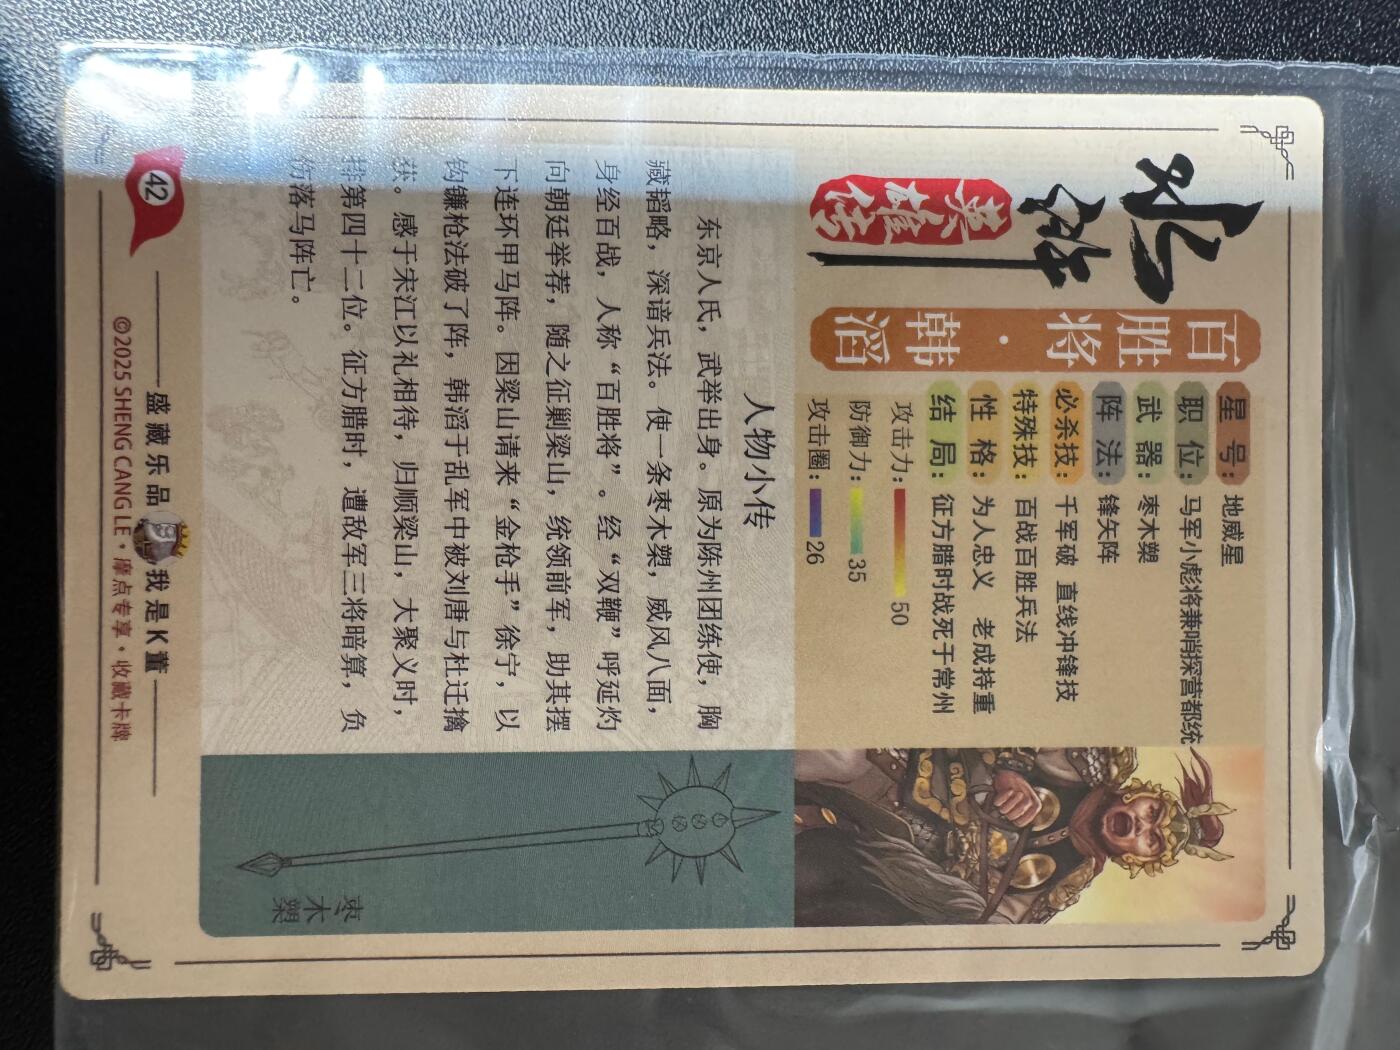 水浒
英雄传
百胜将·韩滔
星号：地威星
职位：马军小彪将兼哨探营都统
武器：枣木槊
阵法：锋矢阵
必杀技：千军破 直线冲锋技
特殊技：百战百胜兵法
性格：为人忠义 老成持重
结局：征方腊时战死于常州
攻击力： 50
防御力： 35
攻击圈： 26
人物小传
东京人氏，武举出身。原为陈州团练使，胸
藏韬略，深谙兵法。使一条枣木槊，威风八面，
身经百战，人称“百胜将”。经“双鞭”呼延灼
向朝廷举荐，随之征剿梁山，统领前军，助其摆
下连环甲马阵。因梁山请来“金枪手”徐宁，以
钩镰枪法破了阵，韩滔于乱军中被刘唐与杜迁擒
获。感于宋江以礼相待，归顺梁山，大聚义时，
排第四十二位。征方腊时，遭敌军三将暗算，负
伤落马阵亡。
枣木槊
42
盛藏乐品 我是K董
©2025 SHENG CANG LE·摩点专享·收藏卡牌